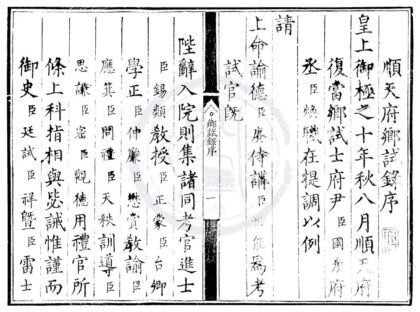 順天府鄉試錄序
皇上御極之十年秋八月順天府
復當鄉試士府尹臣國彥府
丞臣煥職在提調以例
請
上命諭德臣 侍講臣 能為考
試官既
鄉試錄序
一
陛辭入院則集諸同考官進士
臣錫類教授臣正蒙臣台卿
學正臣仲廉臣懋賞教諭臣
應其臣問禮臣天秩訓導臣
思謙臣密臣觀德用禮官所
條上科指相與毖誠惟謹而
御史臣廷試臣祥暨臣雷士